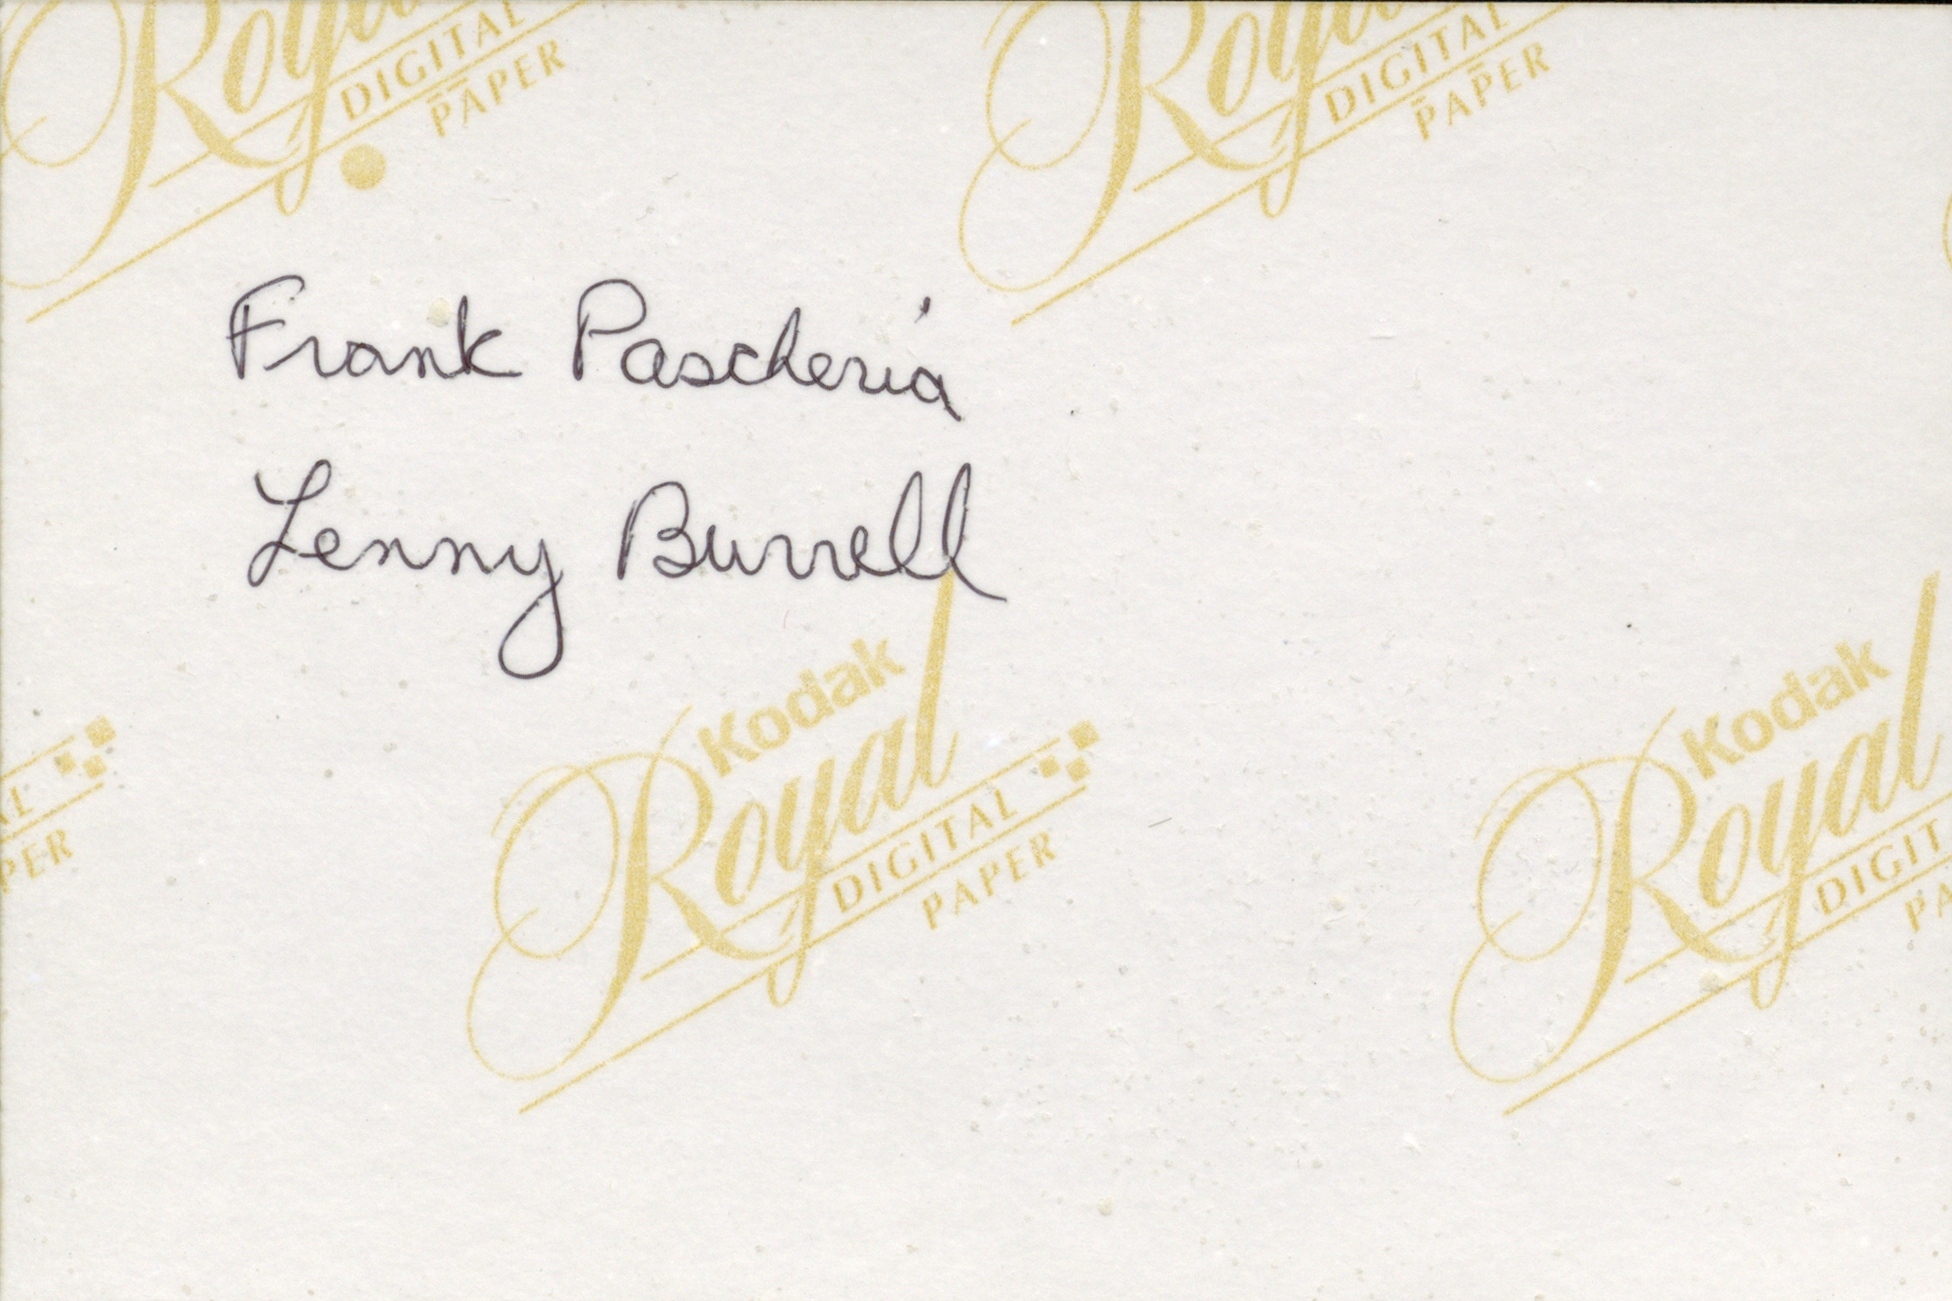 Royal
DIGITAL
PAPER
Royal
DIGITAL
PAPER
Frank Pascheria
Lenny Burrell
Kodak
Royal
DIGITAL
PAPER
Kodak
Royal
DIGIT
PA
AL
PER